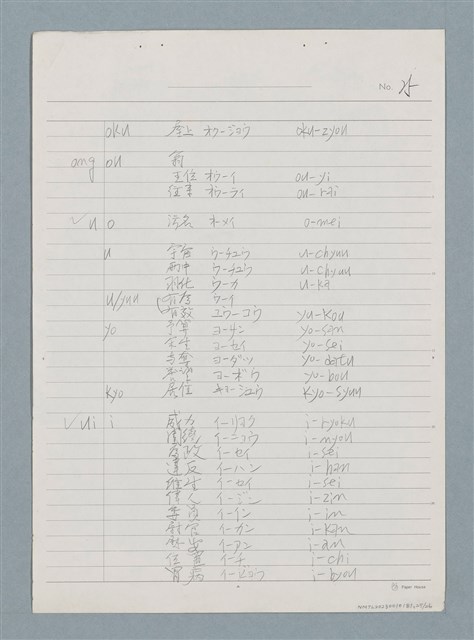 No. 25
oku 屋上 オクージョウ oku-zyou
ong ou 翁
王位 オウーイ ou-yi
往来 オウーライ ou-rai
✓u o 汚名 オーメイ o-mei
u 宇宙 ウーチュウ u-chyuu
雨中 ウーチュウ u-chyuu
羽化 ウーカ u-ka
u/yuu 有為 ウーイ
有効 ユウーコウ yu-kou
yo 予算 ヨーサン yo-san
余生 ヨーセイ yo-sei
与奪 ヨーダツ yo-datu
ヨーボウ yo-bou
kyo 居住 キョージュウ kyo-syuu
✓ui i 威力 イーリョク i-ryoku
囲繞 イーニョウ i-nyou
為政 イーセイ i-sei
違反 イーハン i-han
維生 イーセイ i-sei
偉人 イージン i-zin
委員 イーイン i-in
尉官 イーカン i-kan
慰安 イーアン i-an
位置 イーチ i-chi
胃病 イービョウ i-byou